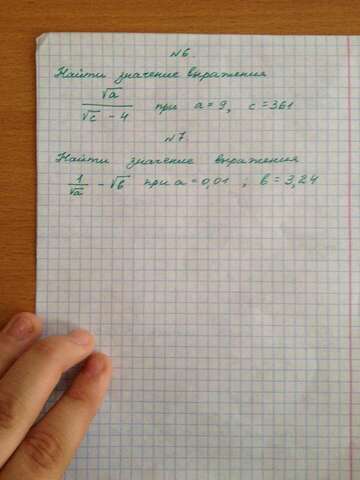 №6.
Найти значение выражения
√a / (√c - 4) при a = 9, c = 361
№7.
Найти значение выражения
1/√a - √b при a = 0,01, b = 3,24